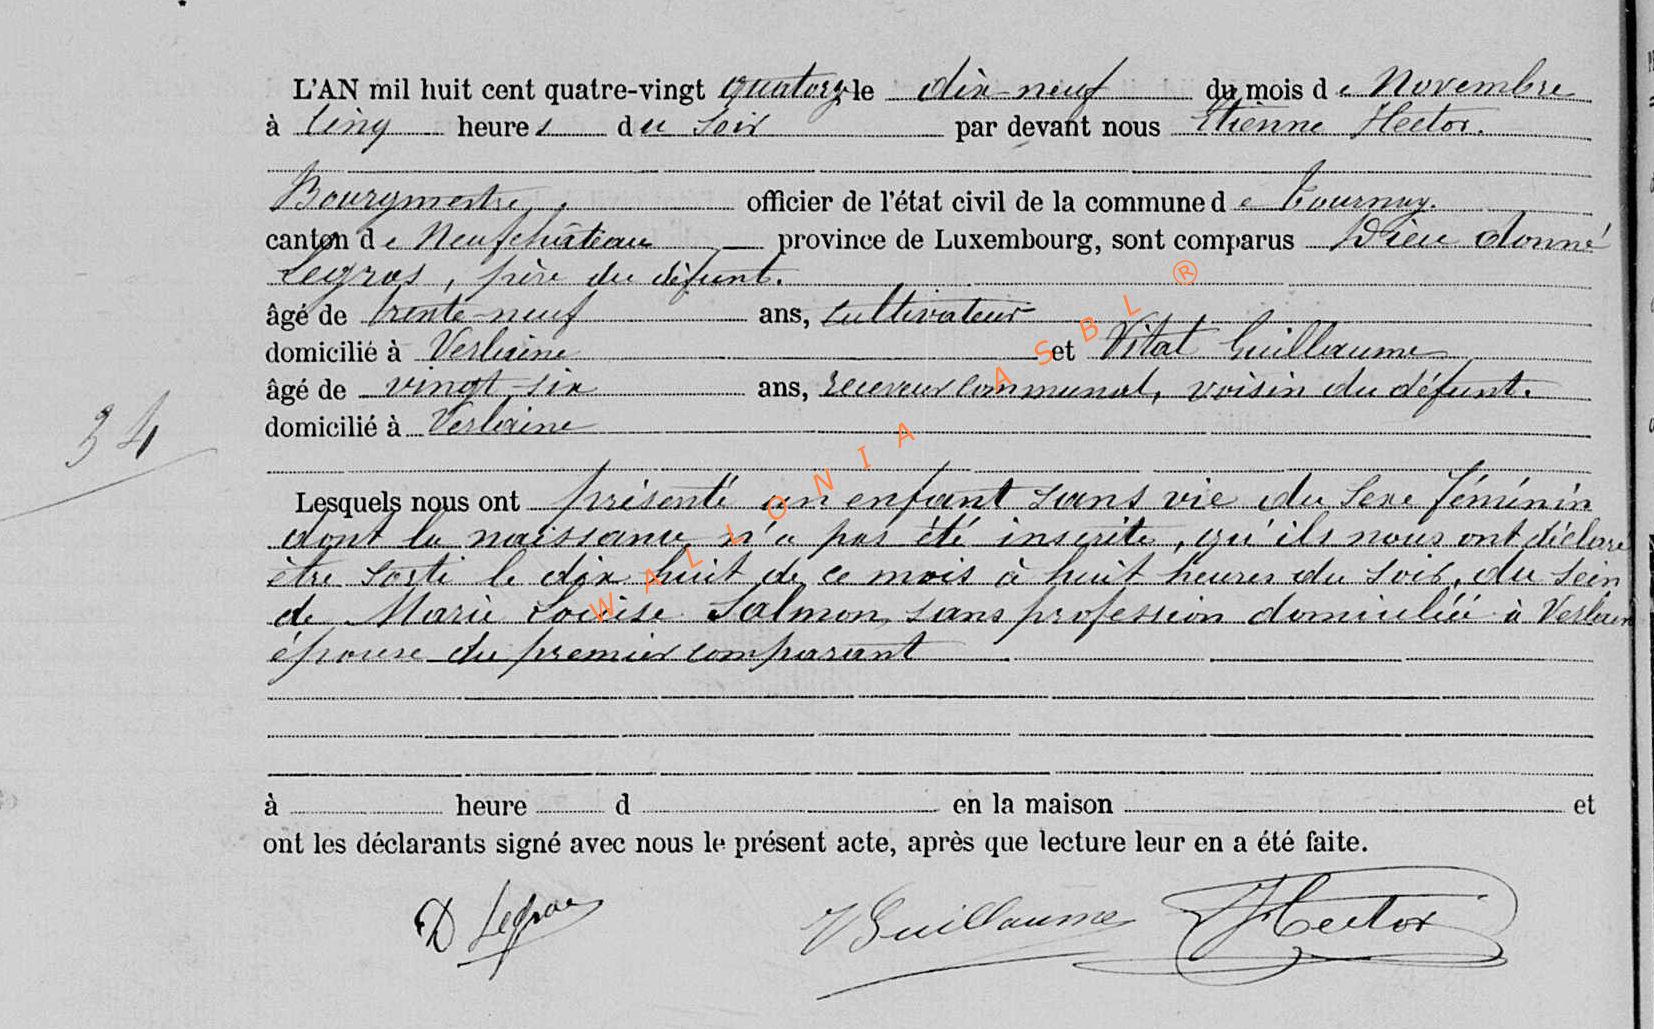 L'AN mil huit cent quatre-vingt quatorze le dix-neuf du mois de Novembre
à cinq heures du soir par devant nous Etienne Hector.
Bourgmestre, officier de l'état civil de la commune de Tournay.
canton de Neufchâteau province de Luxembourg, sont comparus Dieu donné
Legros, père du défunt.
âgé de trente-neuf ans, cultivateur
domicilié à Verlaine et Vital Guillaume
âgé de vingt-six ans, receveur communal, voisin du défunt.
domicilié à Verlaine
34
Lesquels nous ont présenté un enfant sans vie du sexe féminin
dont la naissance n'a pas été inscrite, qu'ils nous ont déclaré
être sorti le dix huit de ce mois à huit heures du soir, du sein
de Marie Louise Salmon, sans profession domiciliée à Verlaine
épouse du premier comparant
à heure d en la maison et
ont les déclarants signé avec nous le présent acte, après que lecture leur en a été faite.
D Legros VGuillaume Hector
WALLONIA ASBL ®